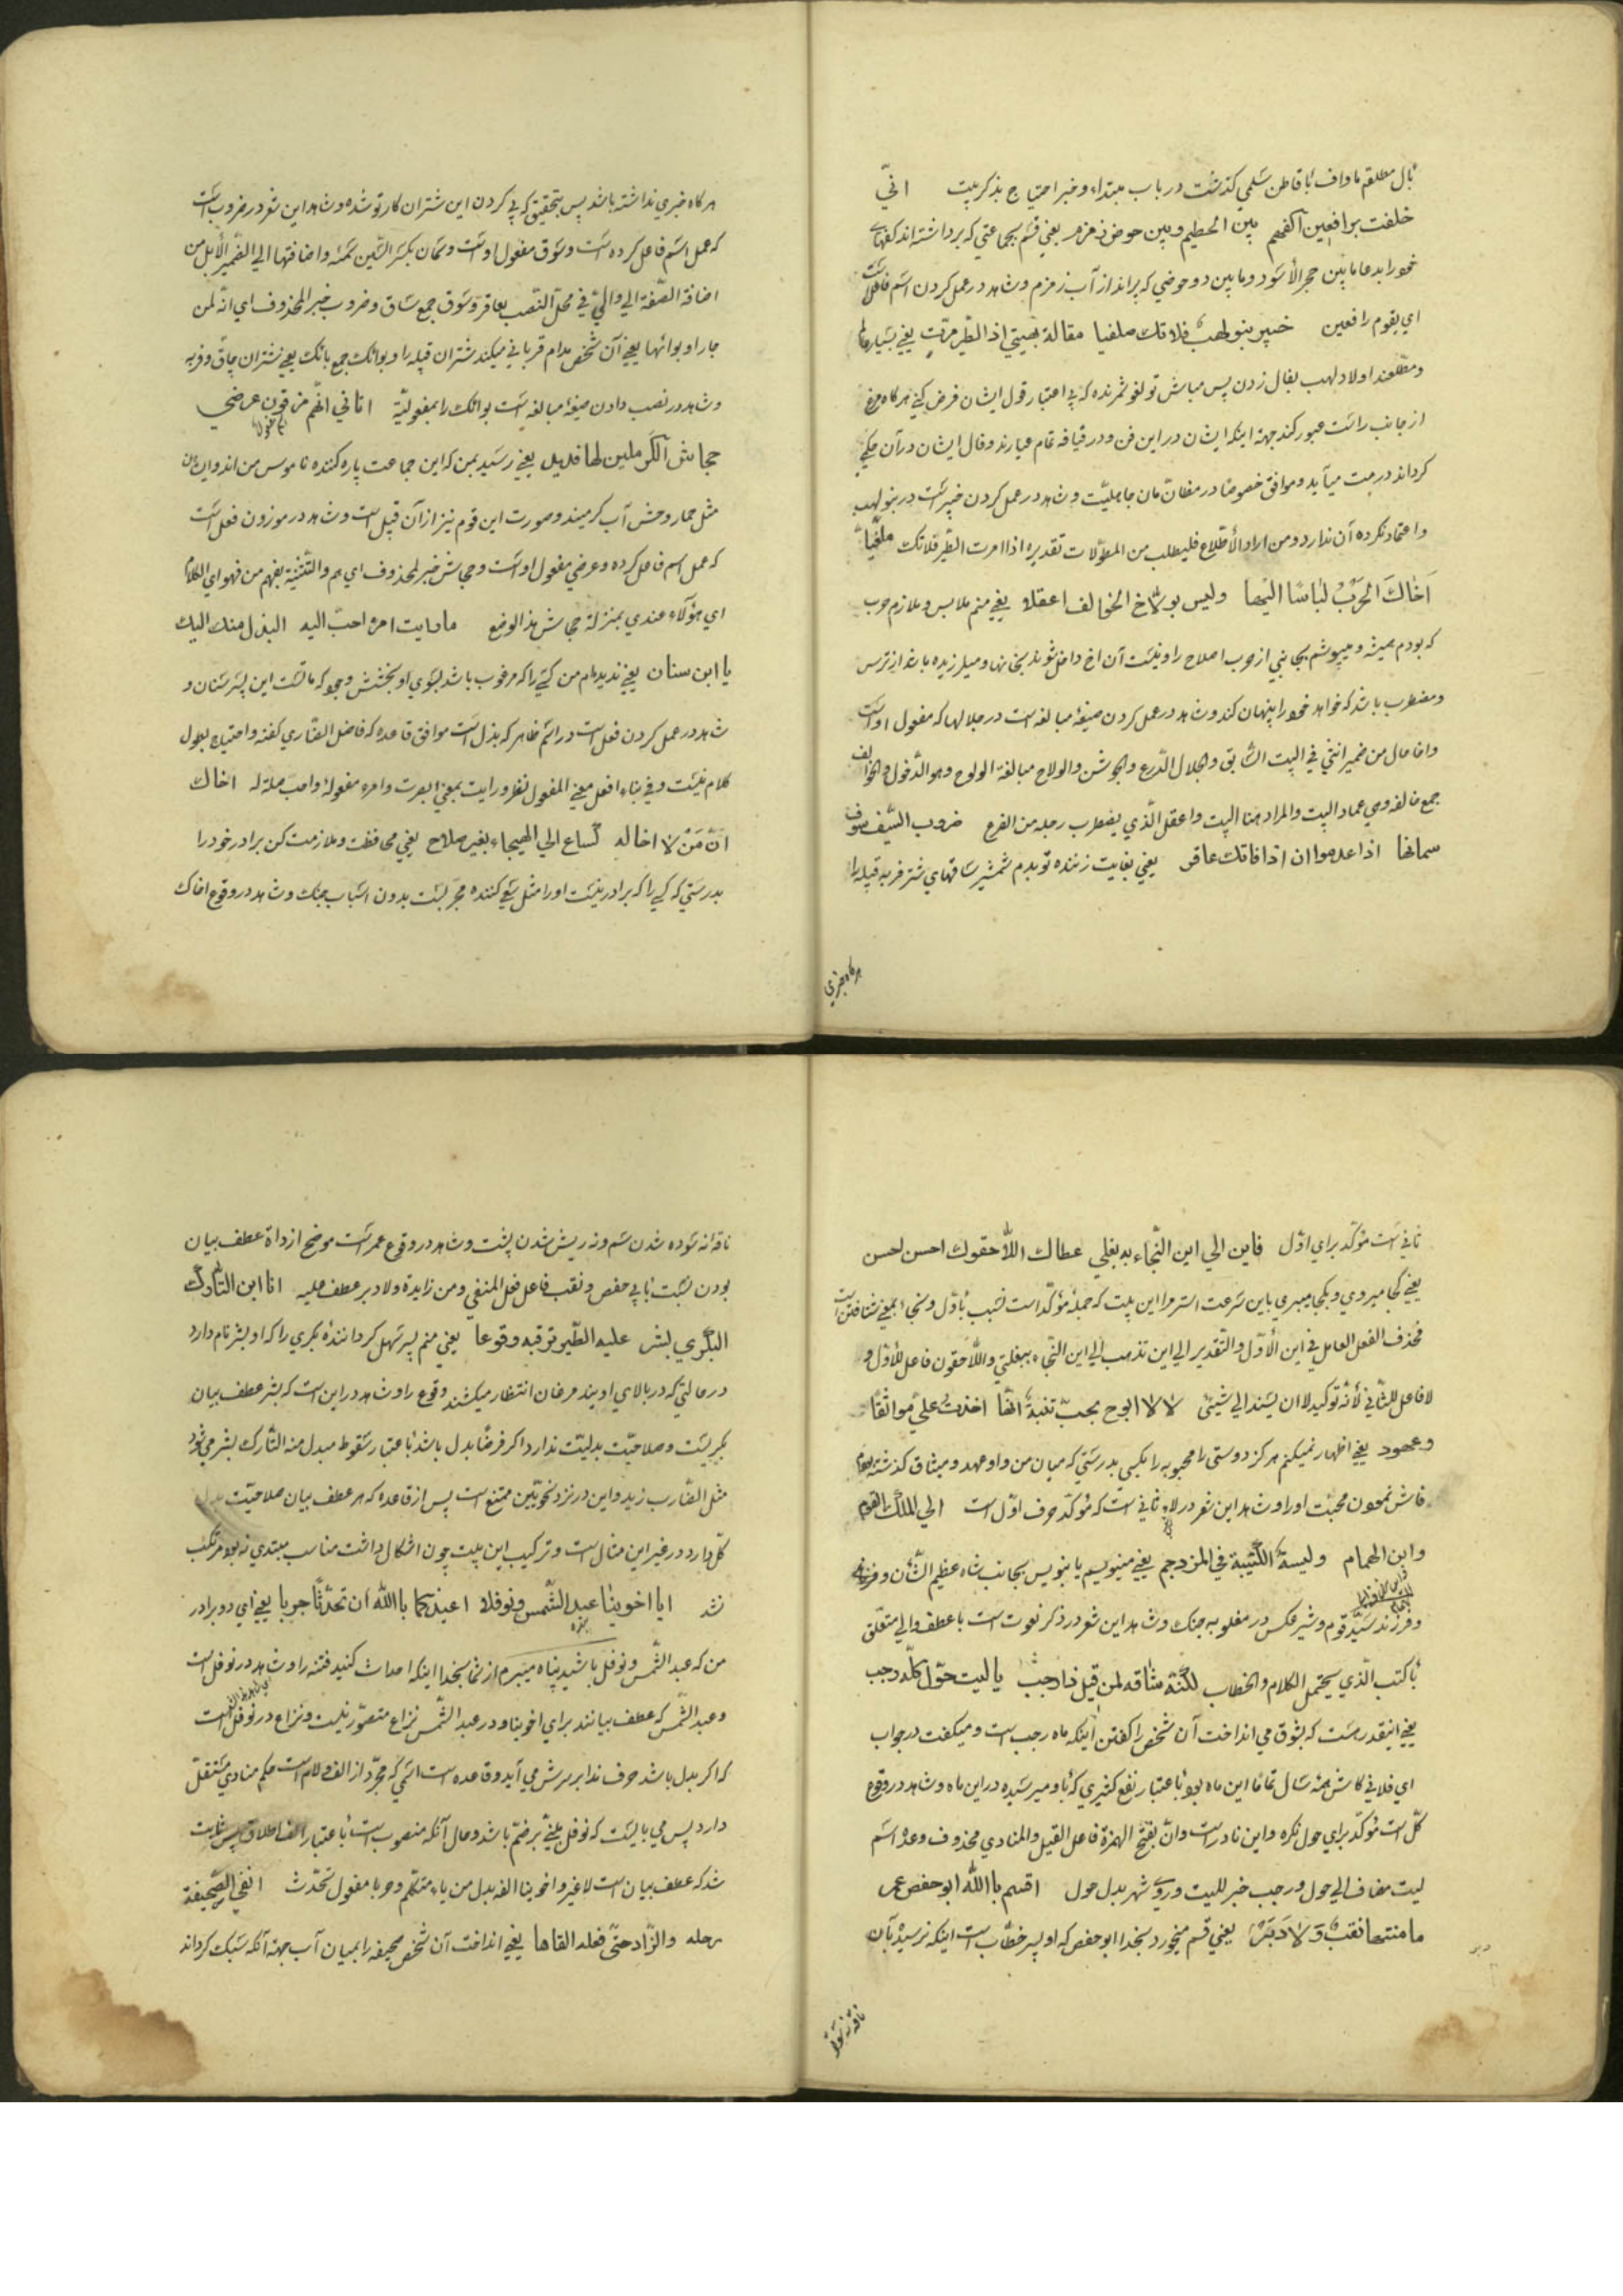 بال مطلقم ماواف باقاطن سلمي کذشت در باب مبتداء و خبر احتیاج بذکر نیست انّي
خلفت برافعین اکفهم بین الحطیم و بین حوض زمزم یعني قسم بجماعتي که برداشته اند کفهاي
خود را بدعا مابین حجر الأسود و مابین دو حوضي که پرانداز آب زمزم و شاهد در عمل کردن اسم فاعل است
اي بقوم رافعین خبیر بنو لهب فلا تك ملغیا مقالة لهبيّ اذا الطیر مرّت یعني بسیار عالم
و مطّلعند اولاد لهب بفال زدن پس مباش تو لغو شمرنده که بي اعتبار قول ایشان فرض کني هر کاه مرغ
از جانب راست عبور کند جهة اینکه ایشان در این فن و در قیافه تمام عیارند و فال ایشان در آن حکمي
کرداند درست میآید و موافق خصوصًا در مظانّ مان جاهلیّت و شاهد در عمل کردن خبیر است در بنو لهب
و اعتماد نکرده آن ندارد و من اراد الأطّلاع فلیطلب من المطوّلات تقدیره اذا مرت الطّیر فلا تك ملغیاً
اَخاك الحَرْبُ لباسًا الیها و لیس بولاّج الخوالف اعقلا یعني منم ملابس و ملازم حرب
که بودم همیشه و میپوشم بجانبي از حرب اصلاح را و نیست آن اخ داخل شونده بخانها و میلرزیده باشد از ترس
و مضطرب باشد که خواهد خود را پنهان کند و شاهد در عمل کردن صیغهٔ مبالغه است در جلالها که مفعول او است
و اخا حال من ضمیر انني في البیت السّابق و جلال الدّرع و الجوشن و الولاج مبالغة الولوج و هو الدّخول و الخوالف
جمع خالفه و هي عماد البیت و المراد هنا البیت و اعقل الّذي یضطرب رجله من الفزع ضروب السّیف سوق
سمانها اذا عدموا ان اذا فانك عاقر یعني بغایت زننده تو بدم شمشیر ساقهاي شتر فربه قبیله را
هر کاه خبري
هر کاه خبري نداشته باشد پس بتحقیق که پي کردن این شتران کار تو شده و شاهد این شعر در ضروب است
که عمل اسم فاعل کرده است و سوق مفعول اوست و سمان بکسر السّین سمنه و اضافتها الي الضّمیر الأبل من
اضافة الصّفة الي و الي في محلّ النّصب بعاقر و سوق جمع ساق و ضروب خبر المحذوف اي انّه لمن
جار او بوائها یعني آن شخص مدام قرباني میکند شتران قبیله را و بوائك جمع بائك یعني شتران چاق و فربه
و شاهد در نصب دادن صیغهٔ مبالغه است بوائك را بمفعولیّة اتاني انّهم مزقون عرضي
جحاش الکرملین لها فدید یعني رسید بمن که این جماعت پاره کننده ناموس من اند و ایشان
مثل حمار وحش آب کرمیند و صورت این قوم نیز از آن قبیل است و شاهد در موزون فعل است
که عمل اسم فاعل کرده و عرضي مفعول اوست و جحاش خبر لمحذوف اي هم و التّثنیة یفهم من فهواي الکلام
اي هؤلاء عندي بمنزلة جحاش هذا الوضع ما رایت امرء احبّ الیه البذل منك الیك
یا ابن سنان یعني ندیده ام من کسي را که مرغوب باشد بسوي او بخشش و جود که مانست این پسر سنان و
شاهد در عمل کردن فعل است در اسم ظاهر که بذل است موافق قاعده که فاضل القاري کفته و احتیاج بطول
کلام نیست و في بناء افعل معني المفعول نظر و رایت بمعني ابصرت و امرء مفعوله و احب صلة له اخاك
انّ مَنْ لا اخا له کساع الي الهیجاء بغیر سلاح یعني محافظت و ملازمت کن برادر خود را
بدرستي که کسي را که برادر نیست او را مثل سعي کننده مجرّبست بدون اسباب جنك و شاهد در وقوع اخاك
ثاني است مؤکّد براي اوّل فاین الي این النّجاء به بغلي عطاك اللاّحقوك احسن احسن
یعني کجا میروي و بکجا میبري باین سرعت استر مرا این بیت که جملهٔ مؤکّد است نسبت باوّل و نجاء بمعني شتافتن است
مُحذف الفعل العامل في این الأوّل و التّقدیر الي این تذهب الي این النّجاء ببغلتي و اللاّحقون فاعل للأوّل و
لا فاعل للثّاني لأنّه توکید لا ان یسند الي شیئ لا لا ابوح بحبّ تثبة انّها اخذت عليّ مواثقًا
و عهود یعني اظهار نمیکنم هرکز دوستي را محبوبه را بکسي بدرستي که میان من و او عهد و میثاق کذشته بود
فاش نمودن محبّت او را و شاهد این شعر در لاء ثاني است که مؤکّد حرف اوّل است الي الملك القرم
و ابن الهمام و لیسة الکتیبة في المزدحم یعني مینویسم یا بنویس بجانب شاه عظیم الشّأن و فرزانه
و فرزند سیّد قوم و شیر عکس در مغلوبه جنك و شاهد این شعر در ذکر نعوت است با عطف و الي متعلّق
باکتب الّذي یحتمل الکلام و الخطاب لکنّه شاقه لمن قیل ذا رجبٌ یا لیت حوّل کلّه رجب
یعني اینقدر هست که بشوق مي انداخت آن شخص را کفتن اینکه ماه رجب است و میکفت در جواب
اي فلاني کاش همهٔ سال تمامًا این ماه بود باعتبار نفع کثیري که باو میرسیده در این ماه و شاهد در وقوع
کلّ است مؤکّد براي حول نکره و این نادر است و انّ بفتح الهمزة فاعل القیل و المنادي محذوف و عدّه اسم
لیت مضاف الي حول و رجب خبر للیت و روي شهر بدل حول اقسم بالله ابو حفص عمر
ما مسّها نقبٌ وَلا دَبَرْ یعني قسم میخورد بخدا ابو حفص که او پسر خطّاب است اینکه نرسیده بآن
ناقه نه سوده
ناقه نه سوده شدن سم و نه ریش شدن پشت و شاهد در وقوع عمر است موضح از داة عطف بیان
بودن نسبت بابي حفص و نقب فاعل فعل المنفي و من زایدة و لا دبر عطف علیه انا ابن التّارك
البکري بشر علیه الطّیر ترقبه وقوعا یعني منم پسر تهل کرداننده بکري را که او بشر نام دارد
در حالتي که در بالاي اویند مرغان انتظار میکشند وقوع را و شاهد در این است که بشر عطف بیان
بکریست و صلاحیّت بدلیّت ندارد اکر فرضًا بدل باشد باعتبار سقوط مبدل منه التّارك بشر مي شود
مثل الضّارب زید و این در نزد نحویّین ممتنع است پس از قاعده که هر عطف بیان صلاحیّت بدل
کلّ دارد در غیر این مثال است و ترکیب این بیت چون اشکال داشت مناسب مبتدي نه بود مرتکب
نشد ایا اخوینا عبد الشّمس و نوفلا اعیذکما بالله ان تحدثا حربا یعني اي دو برادر
من که عبد الشّمس و نوفل باشید پناه میبرم از شما بخدا اینکه احداث کنید فتنه را و شاهد در نوفل است
و عبد الشّمس که عطف بیانند براي اخوینا و در عبد الشّمس نزاع متصوّر نیست و نزاع در نوفل است
که اکر بدل باشد حرف ندا بر سرش مي آید و قاعده است اسمي که مجرّد از الف و لام است حکم منادي مستقلّ
دارد پس مي بایست که نوفل مبني بر ضمّ باشد و حال آنکه منصوب است باعتبار الف اطلاق پس ثابت
شد که عطف بیان است لا غیر و اخوینا الفه بدل من یاء متکلّم و حربا مفعول تحدّث القي الصّحیفة
رحله و الزّاد حتّي نعله القاها یعني انداخت آن شخص صحیفه را بمیان آب جهة آنکه سبك کرداند